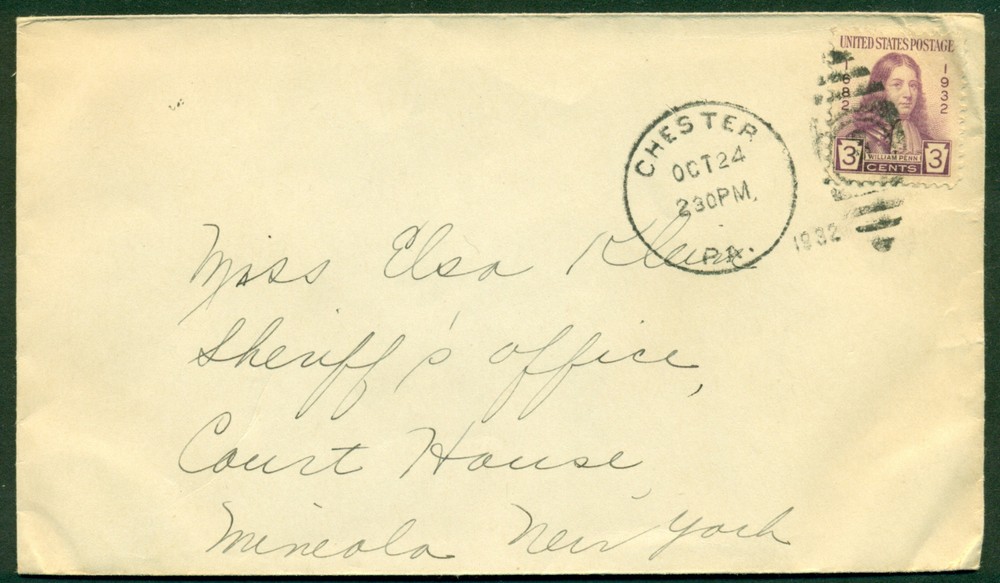 UNITED STATES POSTAGE
1682
1932
3 WILLIAM PENN 3
CENTS
CHESTER
OCT 24
230PM.
PA.
1932
Miss Elsa Klein
Sheriff's office,
Court House,
Mineola New York